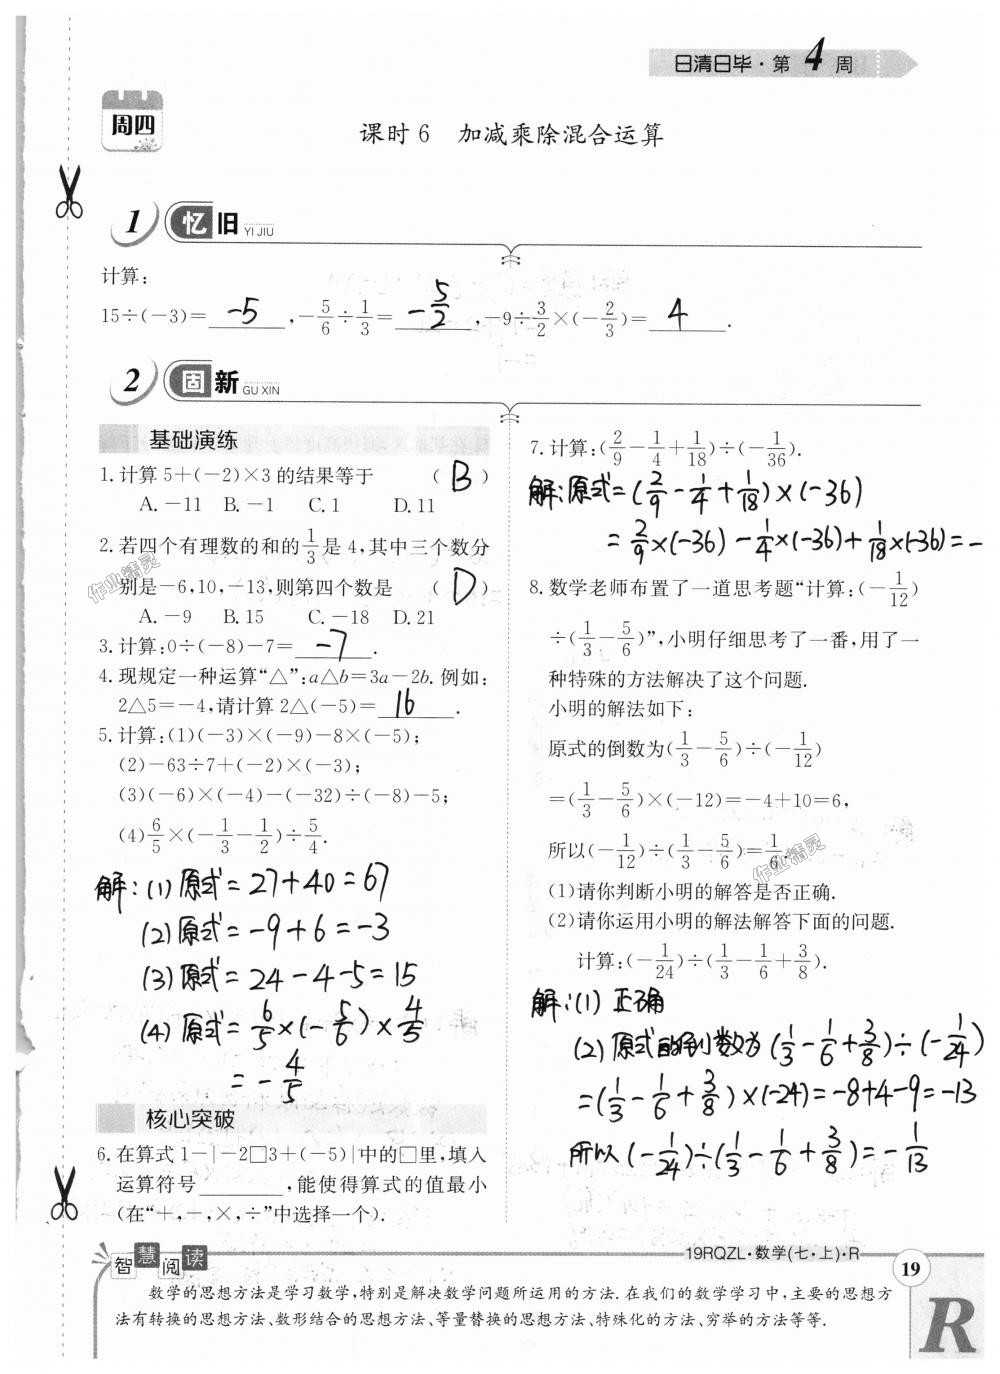 日清日毕·第4周
周四
课时6 加减乘除混合运算
1 忆旧 YI JIU
计算:
15÷(-3)= -5 ,-5/6÷1/3= -5/2 ,-9÷3/2×(-2/3)= 4 .
2 固新 GU XIN
基础演练
1.计算5+(-2)×3的结果等于 ( B )
A.-11 B.-1 C.1 D.11
2.若四个有理数的和的1/3是4,其中三个数分
别是-6,10,-13,则第四个数是 ( D )
A.-9 B.15 C.-18 D.21
3.计算:0÷(-8)-7= -7 .
4.现规定一种运算“△”:a△b=3a-2b.例如:
2△5=-4,请计算2△(-5)= 16 .
5.计算:(1)(-3)×(-9)-8×(-5);
(2)-63÷7+(-2)×(-3);
(3)(-6)×(-4)-(-32)÷(-8)-5;
(4)6/5×(-1/3-1/2)÷5/4.
解:(1)原式=27+40=67
(2)原式=-9+6=-3
(3)原式=24-4-5=15
(4)原式=6/5×(-5/6)×4/5
=-4/5
核心突破
6.在算式1-|-2□3+(-5)|中的□里,填入
运算符号________,能使得算式的值最小
(在“+,-,×,÷”中选择一个).
7.计算:(2/9-1/4+1/18)÷(-1/36).
解:原式=(2/9-1/4+1/18)×(-36)
=2/9×(-36)-1/4×(-36)+1/18×(-36)=-
8.数学老师布置了一道思考题“计算:(-1/12)
÷(1/3-5/6)”,小明仔细思考了一番,用了一
种特殊的方法解决了这个问题.
小明的解法如下:
原式的倒数为(1/3-5/6)÷(-1/12)
=(1/3-5/6)×(-12)=-4+10=6,
所以(-1/12)÷(1/3-5/6)=1/6.
(1)请你判断小明的解答是否正确.
(2)请你运用小明的解法解答下面的问题.
计算:(-1/24)÷(1/3-1/6+3/8).
解:(1)正确
(2)原式的倒数为(1/3-1/6+3/8)÷(-1/24)
=(1/3-1/6+3/8)×(-24)=-8+4-9=-13
所以(-1/24)÷(1/3-1/6+3/8)=-1/13
作业精灵
作业精灵
19RQZL·数学(七·上)·R
19
智慧阅读
数学的思想方法是学习数学,特别是解决数学问题所运用的方法.在我们的数学学习中,主要的思想方
法有转换的思想方法、数形结合的思想方法、等量替换的思想方法、特殊化的方法、穷举的方法等等.
R